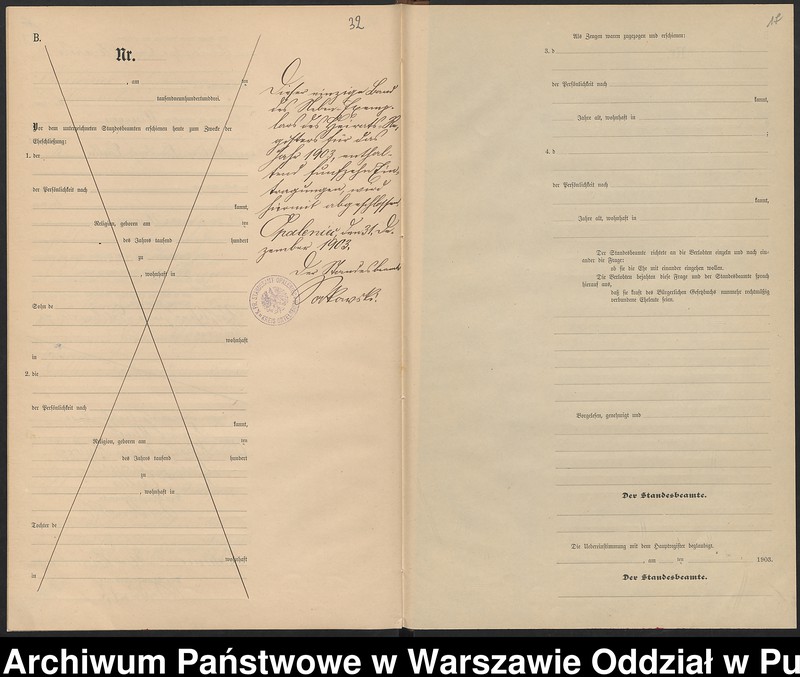 32
B.
Nr.
, am ten
tausendneunhundertunddrei.
Vor dem unterzeichneten Standesbeamten erschienen heute zum Zwecke der
Eheschließung:
1. der
der Persönlichkeit nach
kannt,
Religion, geboren am ten
des Jahres tausend hundert
zu
, wohnhaft in
Sohn de
wohnhaft
in
2. die
der Persönlichkeit nach
kannt,
Religion, geboren am ten
des Jahres tausend hundert
zu
, wohnhaft in
Tochter de
wohnhaft
in
Dieser einzige Band
des Neben-Exemp-
lars des Heirats-Re-
gisters für das
Jahr 1903, enthal-
tend fünfzehn Ein-
tragungen, wird
hiermit abgeschlossen.
Opalenica, den 31. De-
zember 1903.
Der Standesbeamte
17
Als Zeugen waren zugezogen und erschienen:
3. d
der Persönlichkeit nach
kannt,
Jahre alt, wohnhaft in
;
4. d
der Persönlichkeit nach
kannt,
Jahre alt, wohnhaft in
Der Standesbeamte richtete an die Verlobten einzeln und nach ein-
ander die Frage:
ob sie die Ehe mit einander eingehen wollen.
Die Verlobten bejahten diese Frage und der Standesbeamte sprach
hierauf aus,
daß sie kraft des Bürgerlichen Gesetzbuchs nunmehr rechtmäßig
verbundene Eheleute seien.
Vorgelesen, genehmigt und
Der Standesbeamte.
Die Uebereinstimmung mit dem Hauptregister beglaubigt.
, am ten 1903.
Der Standesbeamte.
Archiwum Państwowe w Warszawie Oddział w Pu